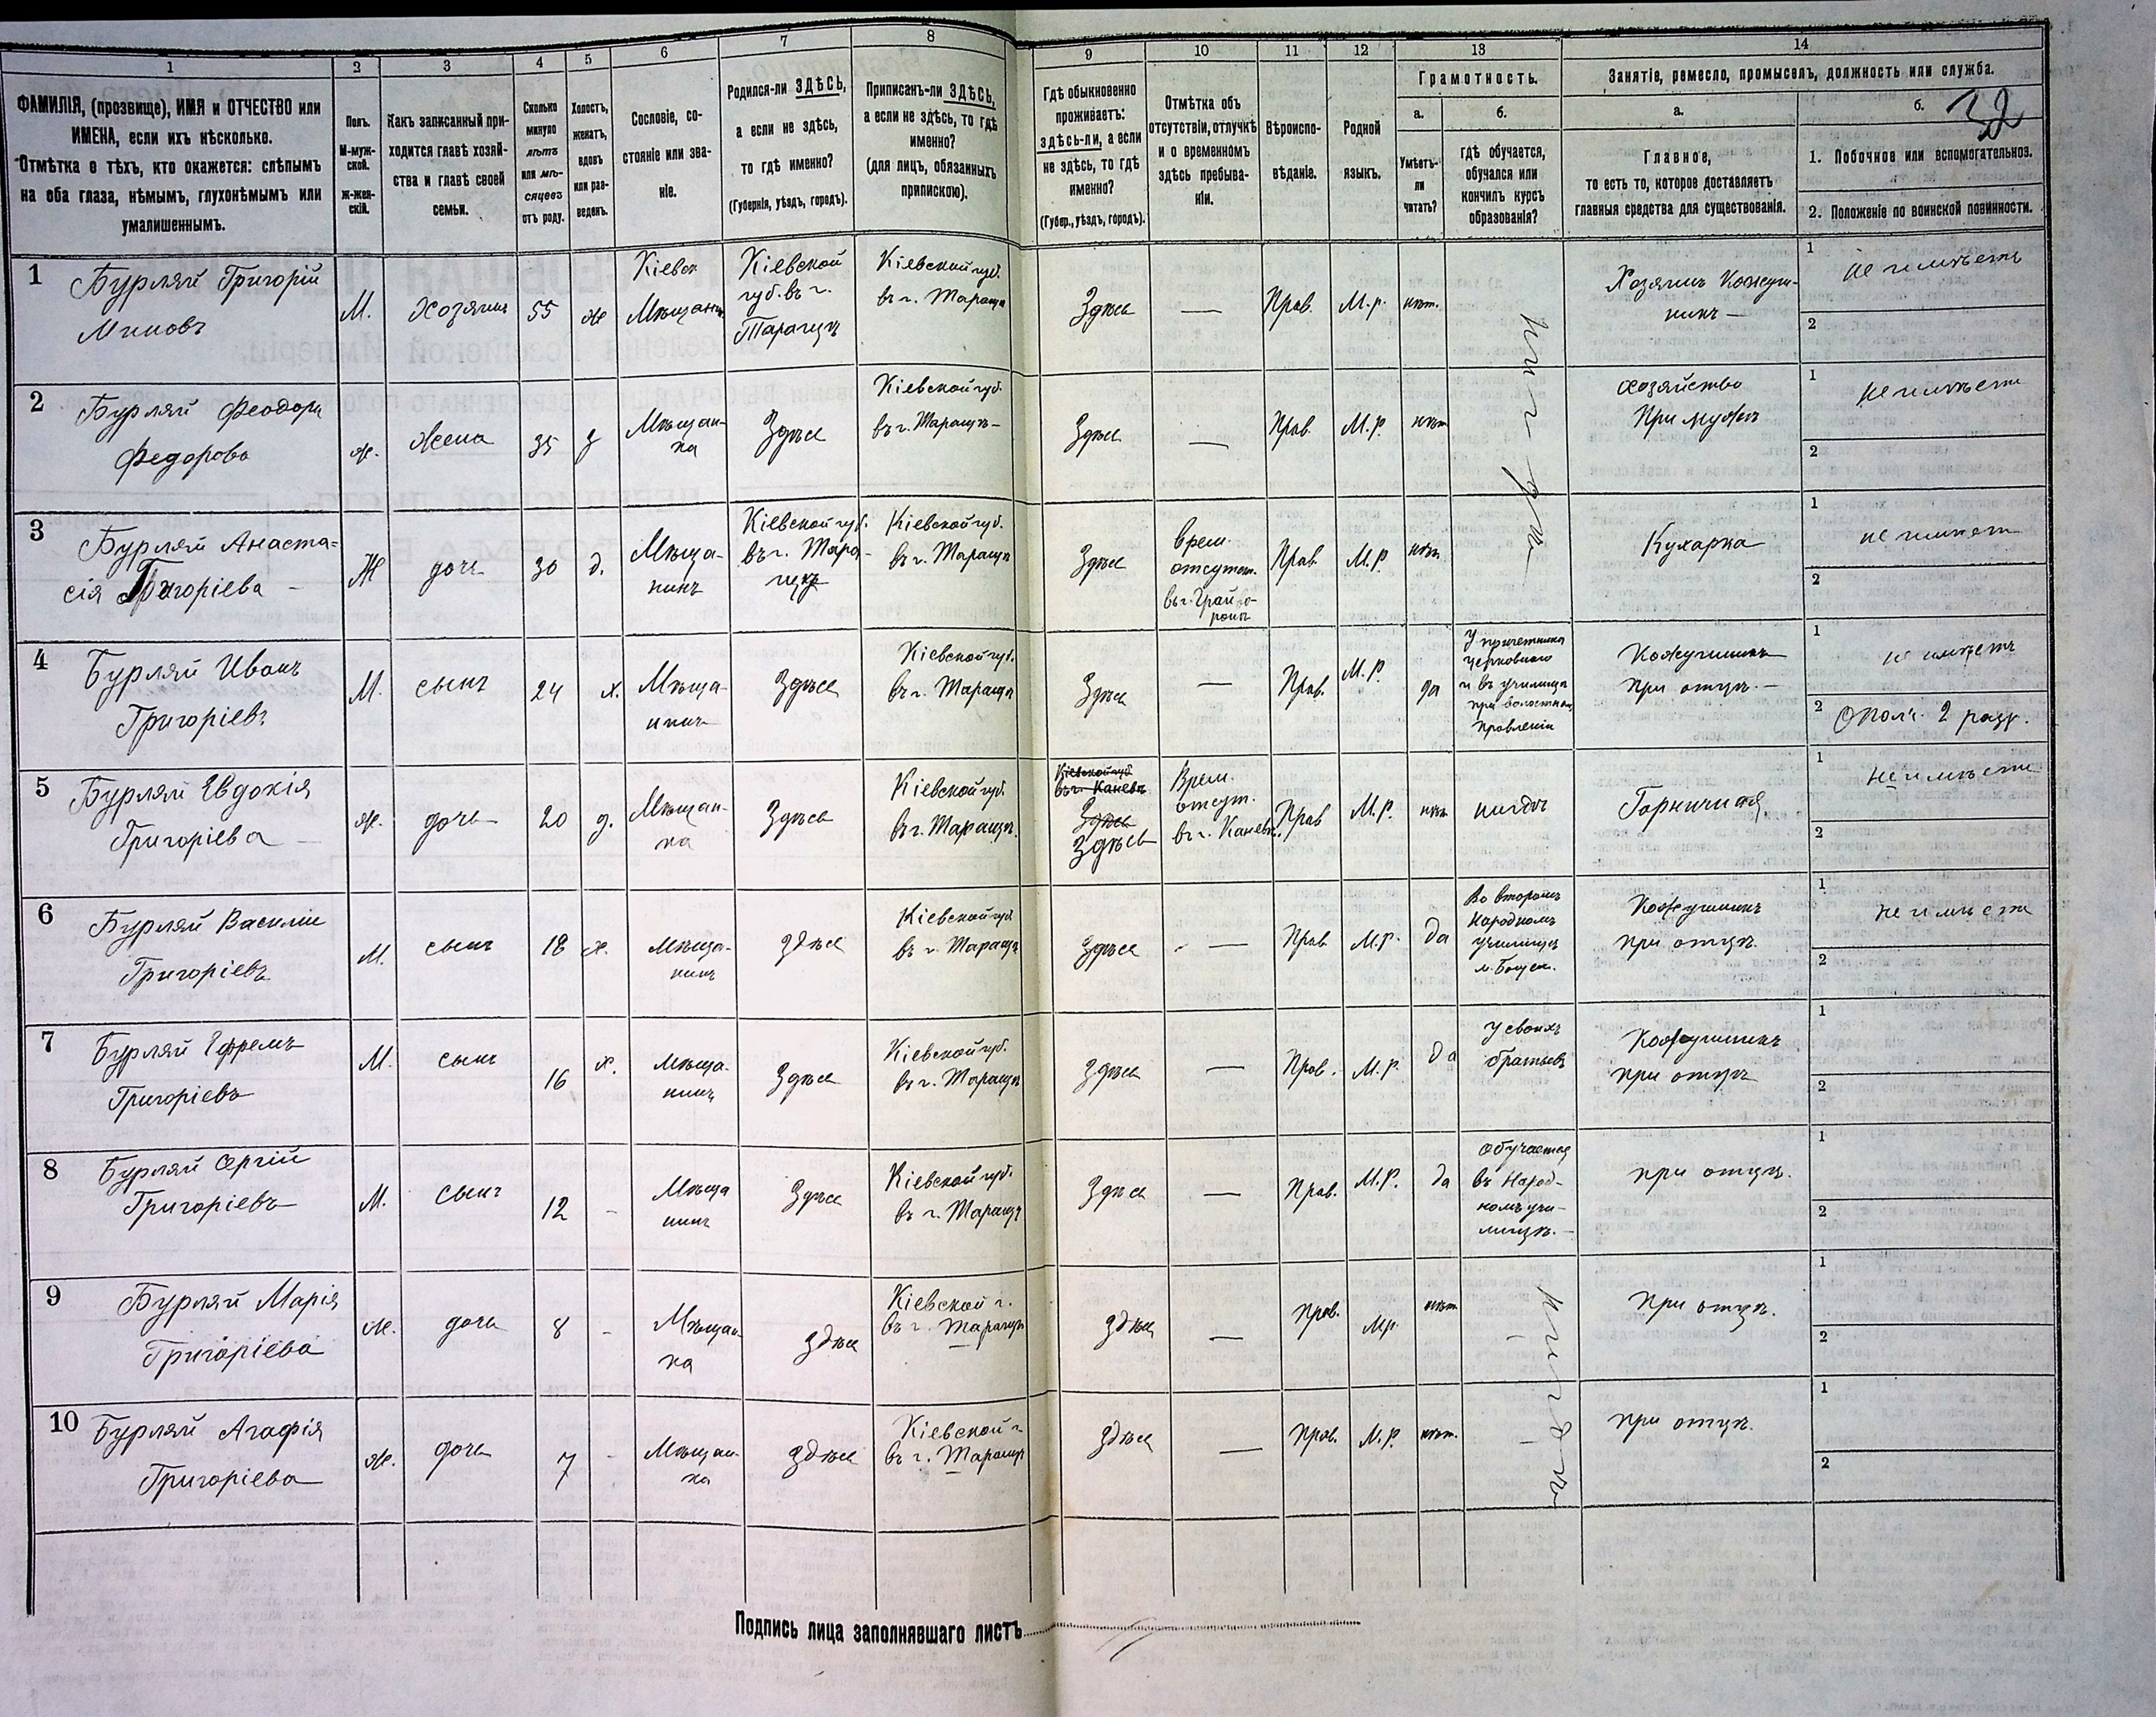 1
2
3
4
5
6
7
8
9
10
11
12
13
14
ФАМИЛІЯ, (прозвище), ИМЯ и ОТЧЕСТВО или
ИМЕНА, если ихъ нѣсколько.
Отмѣтка о тѣхъ, кто окажется: слѣпымъ
на оба глаза, нѣмымъ, глухонѣмымъ или
умалишеннымъ.
Полъ.
М-муж-
ской.
Ж-жен-
скій.
Какъ записанный при-
ходится главѣ хозяй-
ства и главѣ своей
семьи.
Сколько
минуло
лѣтъ
или мѣ-
сяцевъ
отъ роду.
Холостъ,
женатъ,
вдовъ
или раз-
веденъ.
Сословіе, со-
стояніе или зва-
ніе.
Родился-ли ЗДѢСЬ,
а если не здѣсь,
то гдѣ именно?
(Губернія, уѣздъ, городъ).
Приписанъ-ли ЗДѢСЬ,
а если не здѣсь, то гдѣ
именно?
(для лицъ, обязанныхъ
припискою).
Гдѣ обыкновенно
проживаетъ:
здѣсь-ли, а если
не здѣсь, то гдѣ
именно?
(Губер., уѣздъ, городъ).
Отмѣтка объ
отсутствіи, отлучкѣ
и о временномъ
здѣсь пребыва-
ніи.
Вѣроиспо-
вѣданіе.
Родной
языкъ.
Грамотность.
а.
Умѣетъ-
ли
читать?
б.
гдѣ обучается,
обучался или
кончилъ курсъ
образованія?
Занятіе, ремесло, промыселъ, должность или служба.
а.
Главное,
то есть то, которое доставляетъ
главныя средства для существованія.
б.
32
1. Побочное или вспомогательное.
2. Положеніе по воинской повинности.
1
Бурляй Григорій
М.
Хозяинъ
55
ж
Мѣщанин
Кіевской
губ. въ г.
Таращѣ
Кіевской губ.
въ г. Таращѣ
Здѣсь
—
Прав.
М.р.
нѣт.
Хозяинъ Кожуш-
никъ —
1
Не имѣетъ
2
2
Бурляй Феодора
Федорова
ж.
Жена
35
з
Мѣщан-
ка
Здѣсь
Кіевской губ.
въ г. Таращѣ —
Здѣсь
—
Прав.
М.р.
нѣт
Хозяйство
При мужѣ
1
Не имѣетъ
2
3
Бурляй Анаста-
сія Григоріева —
Ж
дочь
30
д.
Мѣща-
нинъ
Кіевской губ.
въ г. Тара-
щѣ
Кіевской губ.
въ г. Таращѣ
Здѣсь
Врем.
отсутст.
Прав.
М.р.
нѣт
Кухарка
1
не имѣетъ
2
4
Бурляй Иванъ
Григоріевъ
М.
сынъ
24
х.
Мѣща-
нинъ
Здѣсь
Кіевской губ.
въ г. Таращѣ
Здѣсь
—
Прав.
М.р.
да
У причетника
церковного
и въ училище
при волостном
правленіи
Кожушникъ
при отцѣ. —
1
не имѣетъ
2
Ополч. 2 разр.
5
Бурляй Евдокія
Григоріева —
ж.
дочь
20
д.
Мѣщан-
ка
Здѣсь
Кіевской губ.
въ г. Таращѣ.
Кіевской губ
въ г. Каневѣ
Здѣсь
Здѣсь
Врем.
отсут.
въ г. Каневѣ.
Прав
М.р.
нѣт
нигдѣ
Горничная
1
не имѣетъ
2
6
Бурляй Василій
Григоріевъ
М.
сынъ
18
х.
Мѣща-
нинъ
здѣсь
Кіевской губ
въ г. Таращѣ
Здѣсь
—
Прав
М.р.
да
Во второмъ
народномъ
училищѣ
Кожушникъ
при отцѣ.
1
не имѣетъ
2
7
Бурляй Ефремъ
Григоріевъ
М.
сынъ
16
х.
Мѣща-
нинъ
Здѣсь
Кіевской губ.
въ г. Таращѣ
Здѣсь
—
Прав.
М.р.
да
У своихъ
братьевъ
Кожушникъ
при отцѣ
1
2
8
Бурляй Сергій
Григоріевъ
М.
сынъ
12
-
Мѣща
нинъ
Здѣсь
Кіевской губ.
въ г. Таращѣ
Здѣсь
—
Прав.
М.р.
да
Обучается
въ Народ-
номъ учи-
лищѣ. —
при отцѣ.
1
2
9
Бурляй Марія
Григоріева
ж.
дочь
8
-
Мѣщан
ка
здѣсь
Кіевской г.
въ г. Таращѣ
здѣсь
—
Прав.
М.р.
нѣт.
при отцѣ.
1
2
10
Бурляй Агафія
Григоріева
ж.
дочь
7
-
Мѣщан-
ка
здѣсь
Кіевской г.
въ г. Таращѣ
здѣсь
—
Прав.
М.р.
нѣт.
при отцѣ.
1
2
Подпись лица заполнявшаго листъ